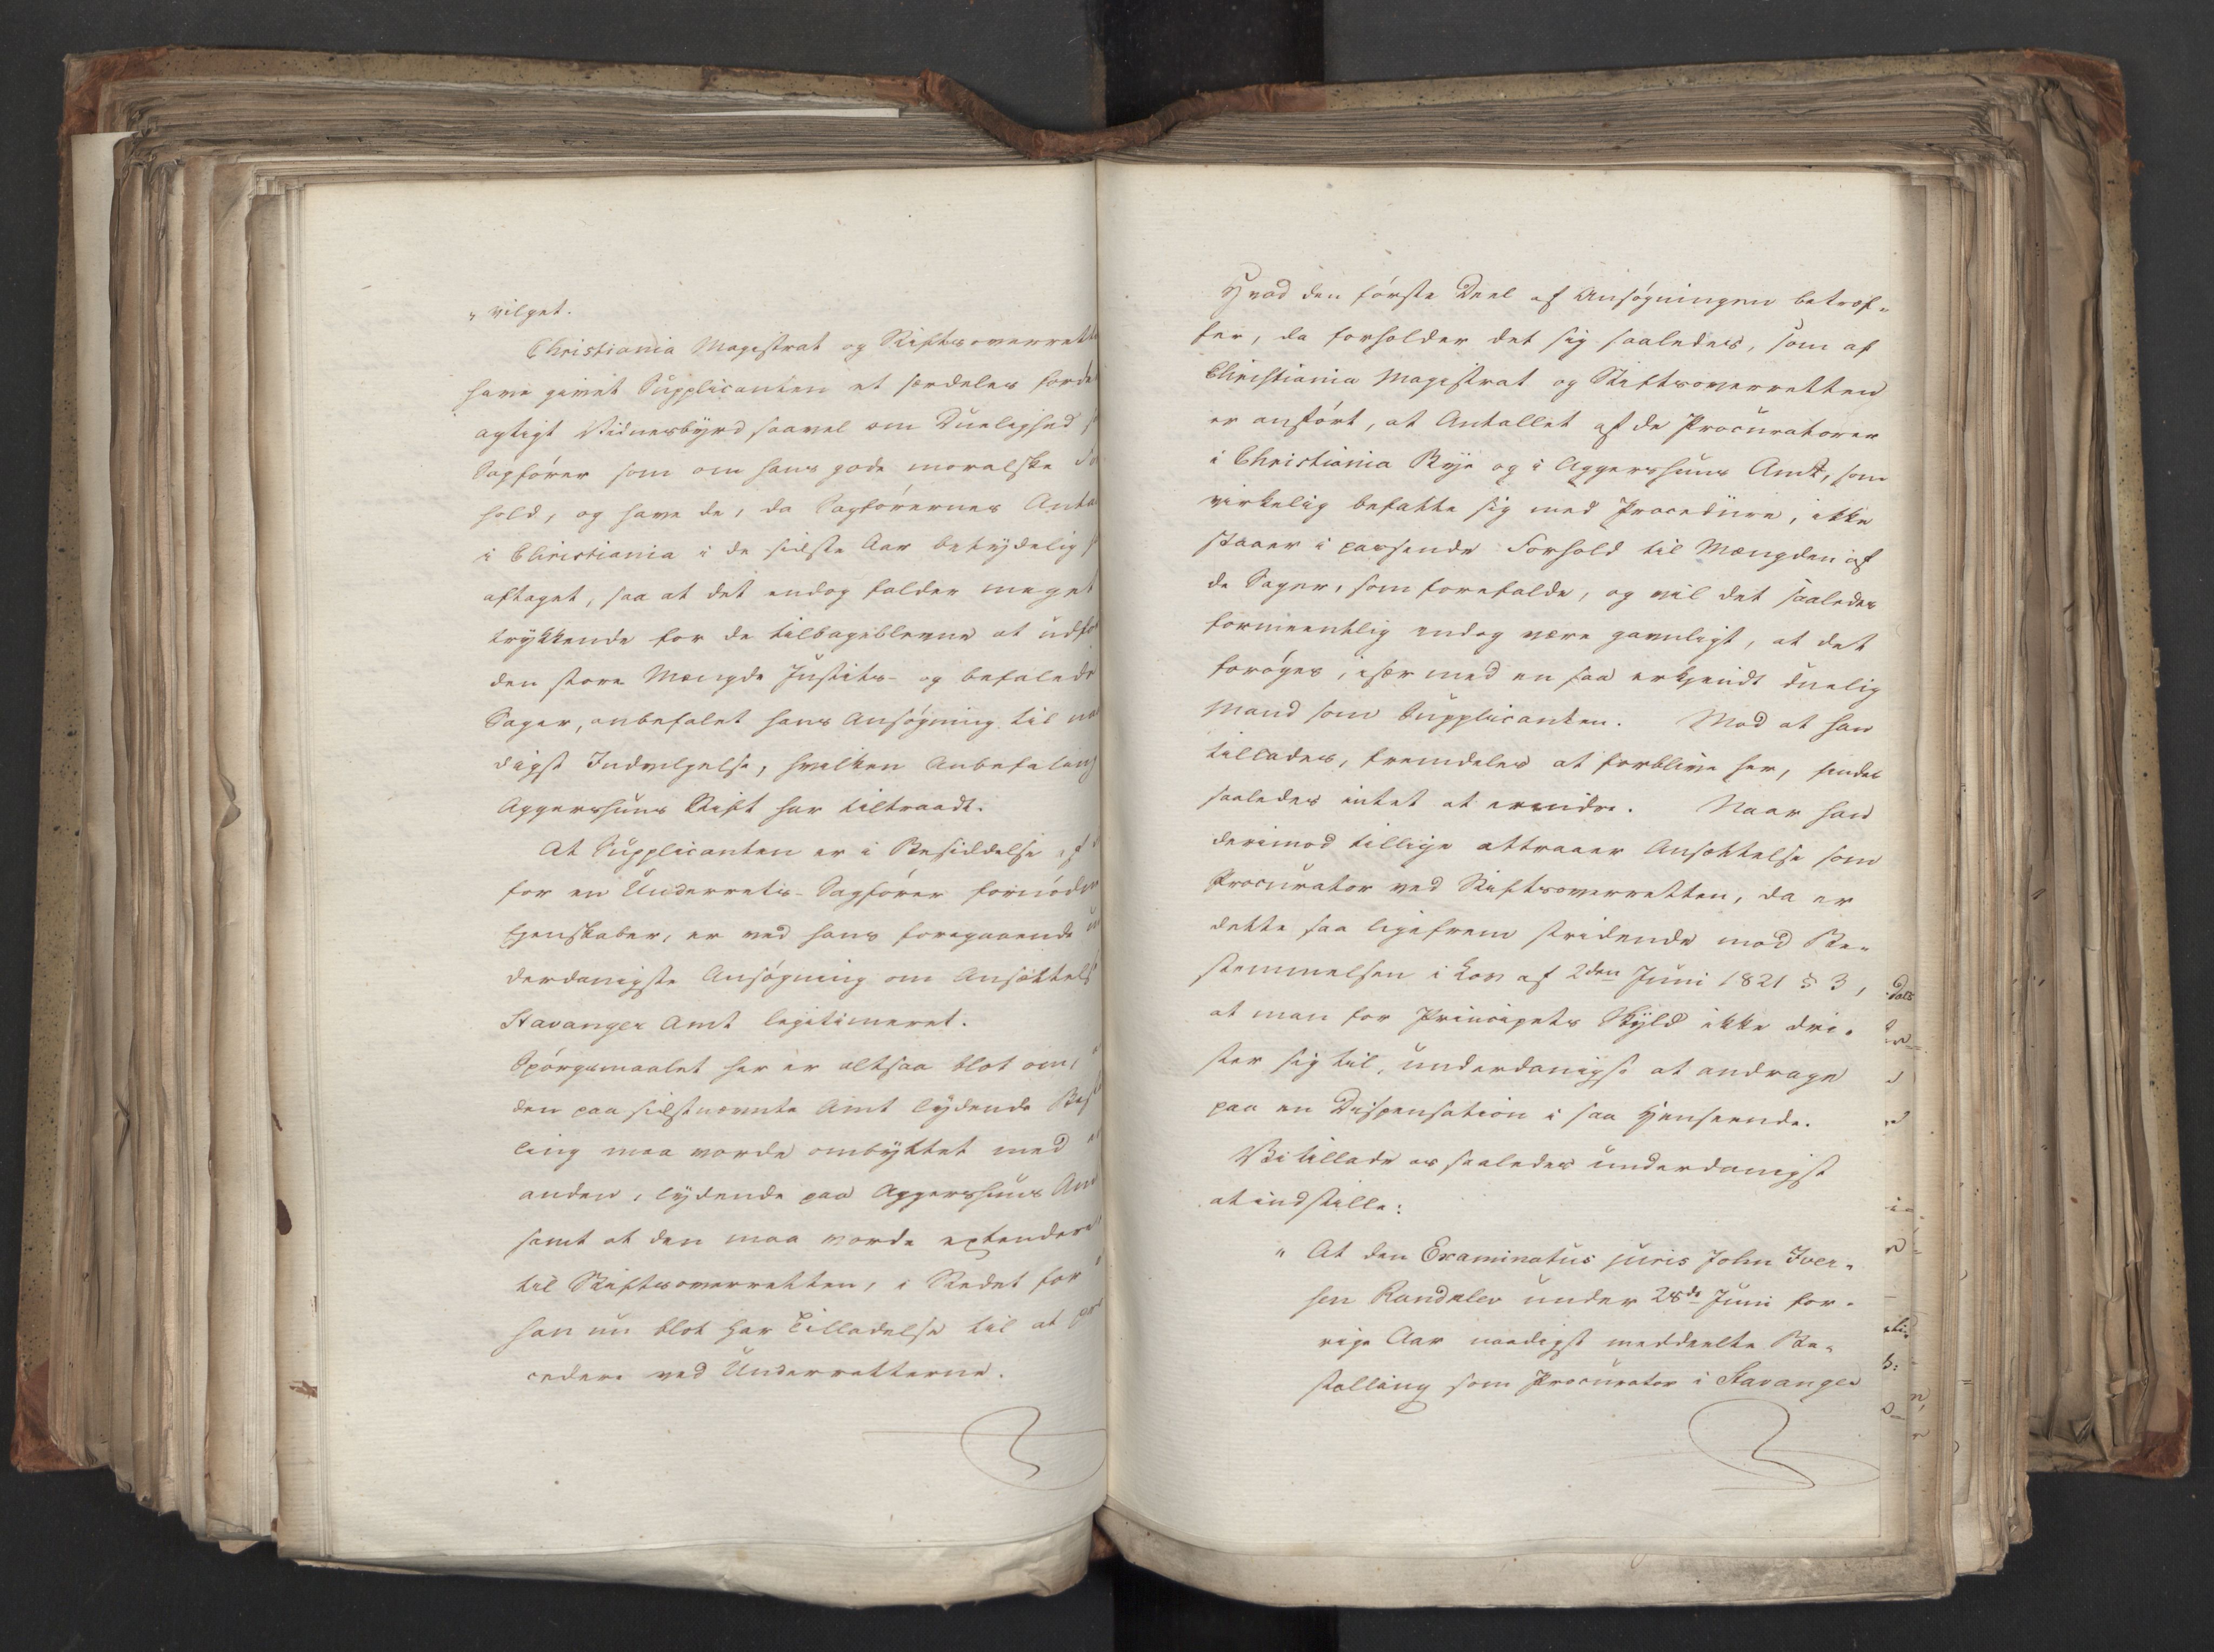 „vilget.
Christiania Magistrat og Stiftsoverrette
have givet Supplicanten et særdeles forde
agtigt Vidnesbyrd saavel om Duelighed s
Sagfører som om hans gode moralske Fo
hold, og have de, da Sagførernes Anta
i Christiania i de sidste Aar betydelig h
aftaget, saa at det endog falder meget
trykkende for de tilbageblevne at udfø
den store Mængde Justits- og befalede
Sager, anbefalet hans Ansøgning til naa
digst Indvilgelse, hvilken Anbefaling
Aggershuus Stift har tiltraadt.
At Supplicanten er i Besiddelse af d
for en Underrets-Sagfører fornødne
Egenskaber, er ved hans foregaaende un
derdanigste Ansøgning om Ansættelse
Stavanger Amt legitimeret.
Spørgsmaalet her er altsaa blot om,
den paa sidstnævnte Amt lydende Best
ling maa vorde ombyttet med en
anden, lydende paa Aggershuus Amt
samt at den maa vorde extendere
til Stiftsoverretten, i Stedet for
han nu blot har Tilladelse til at pro
cedere ved Underretterne.
Hvad den første Deel af Ansøgningen betræf-
fer, da forholder det sig saaledes, som af
Christiania Magistrat og Stiftsoverretten
er anført, at Antallet af de Procuratorer
i Christiania Bye og i Aggershuus Amt, som
virkelig befatte sig med Procedure, ikke
staaer i passende Forhold til Mængden af
de Sager, som forefalde, og vil det saaledes
formeentlig endog være gavnligt, at det
forøges, især med en saa erkjendt duelig
Mand som Supplicanten. Mod at han
tillades, fremdeles at forblive her, findes
saaledes intet at erindre. Naar han
derimod tillige attraaer Ansættelse som
Procurator ved Stiftsoverretten, da er
dette saa ligefrem stridende mod Be-
stemmelsen i Lov af 2den Juni 1821 § 3,
at man for Principets Skyld ikke dri-
ster sig til, underdanigst at andrage
paa en Dispensation i saa Henseende.
Vi tillade os saaledes underdanigst
at indstille:
„At den Examinatus juris John Iver-
sen Randulev under 28de Juni for-
rige Aar naadigst meddeelte Be-
stalling som Procurator i Stavanger